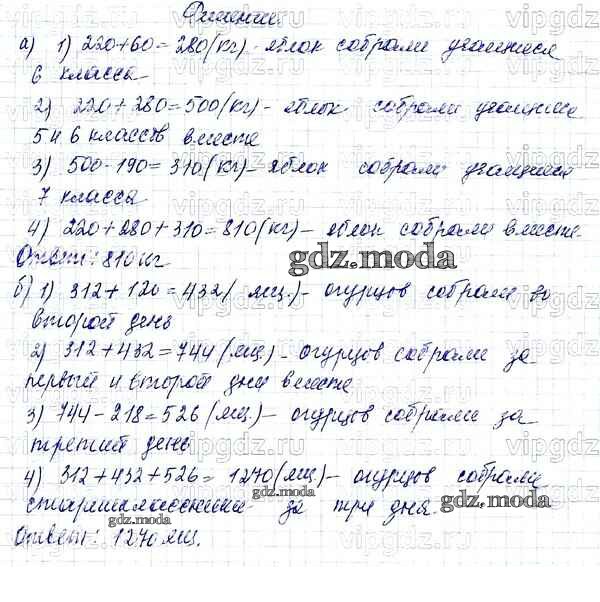 Решение
а) 1) 220+60=280(кг)-яблок собрали учащиеся
6 класса
2) 220+280=500(кг)-яблок собрали учащиеся
5 и 6 классов вместе
3) 500-190=310(кг)-яблок собрали учащиеся
7 класса
4) 220+280+310=810(кг)-яблок собрали вместе.
Ответ: 810 кг
gdz.moda
б) 1) 312+120=432(ящ.)-огурцов собрали во
второй день
2) 312+432=744(ящ.)-огурцов собрали за
первый и второй дни вместе
3) 744-218=526(ящ.)-огурцов собрали за
третий день
4) 312+432+526=1270(ящ.)-огурцов собрали
старшеклассники за три дня.
gdz.moda gdz.moda
gdz.moda
Ответ: 1270 ящ.
vipgdz.ru